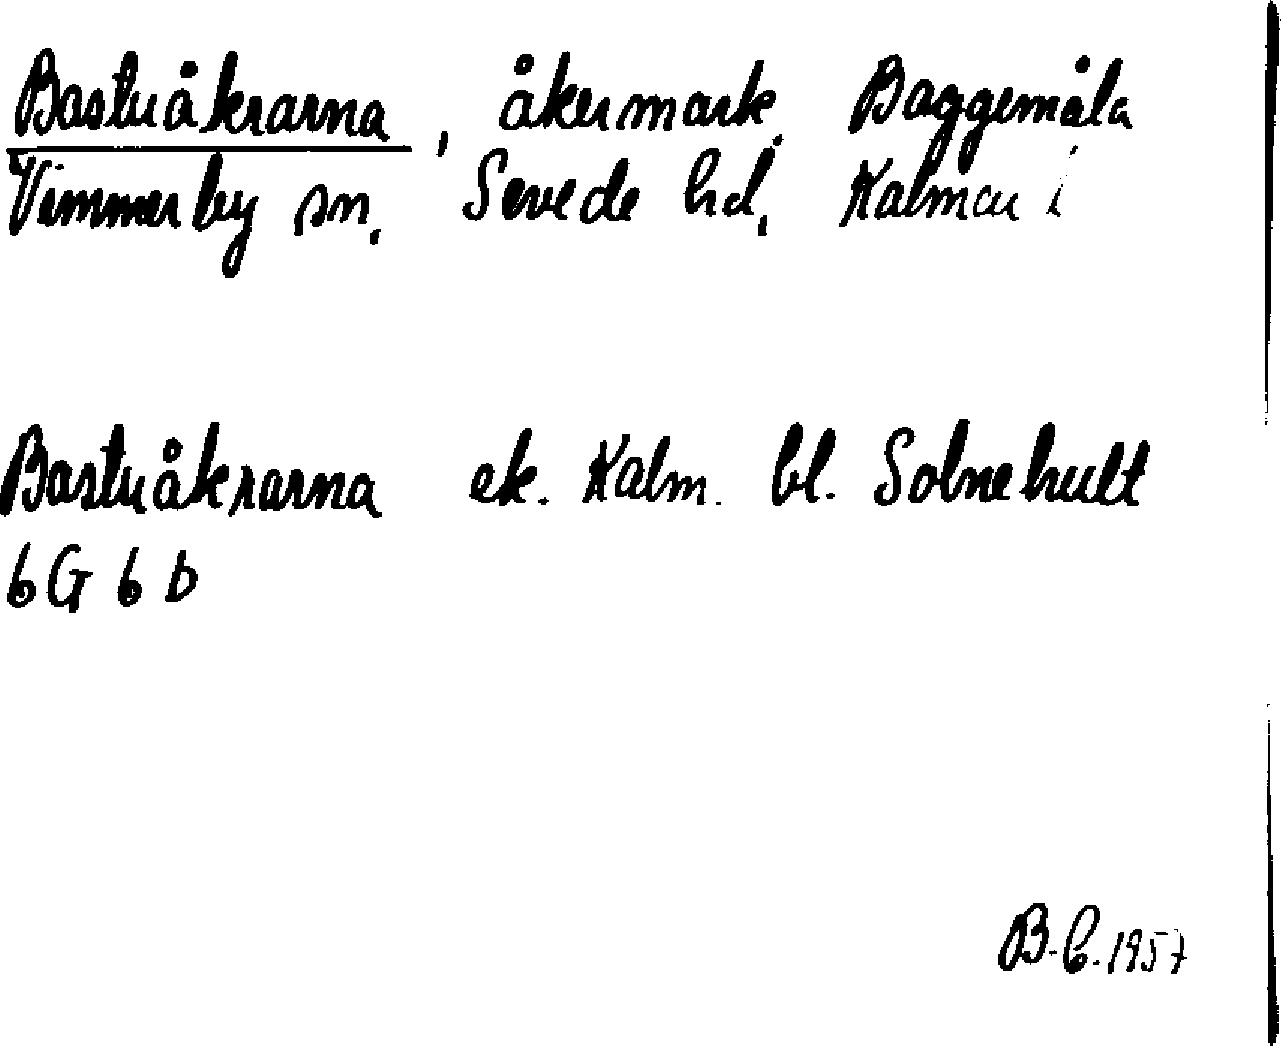 Bastuåkrarna, åkermark, Baggemåla
Vimmerby sn, Sevede hd, Kalmar l
Bastuåkrarna ek. Kalm. bl. Solnehult
6G 6 b
B.C. 1957